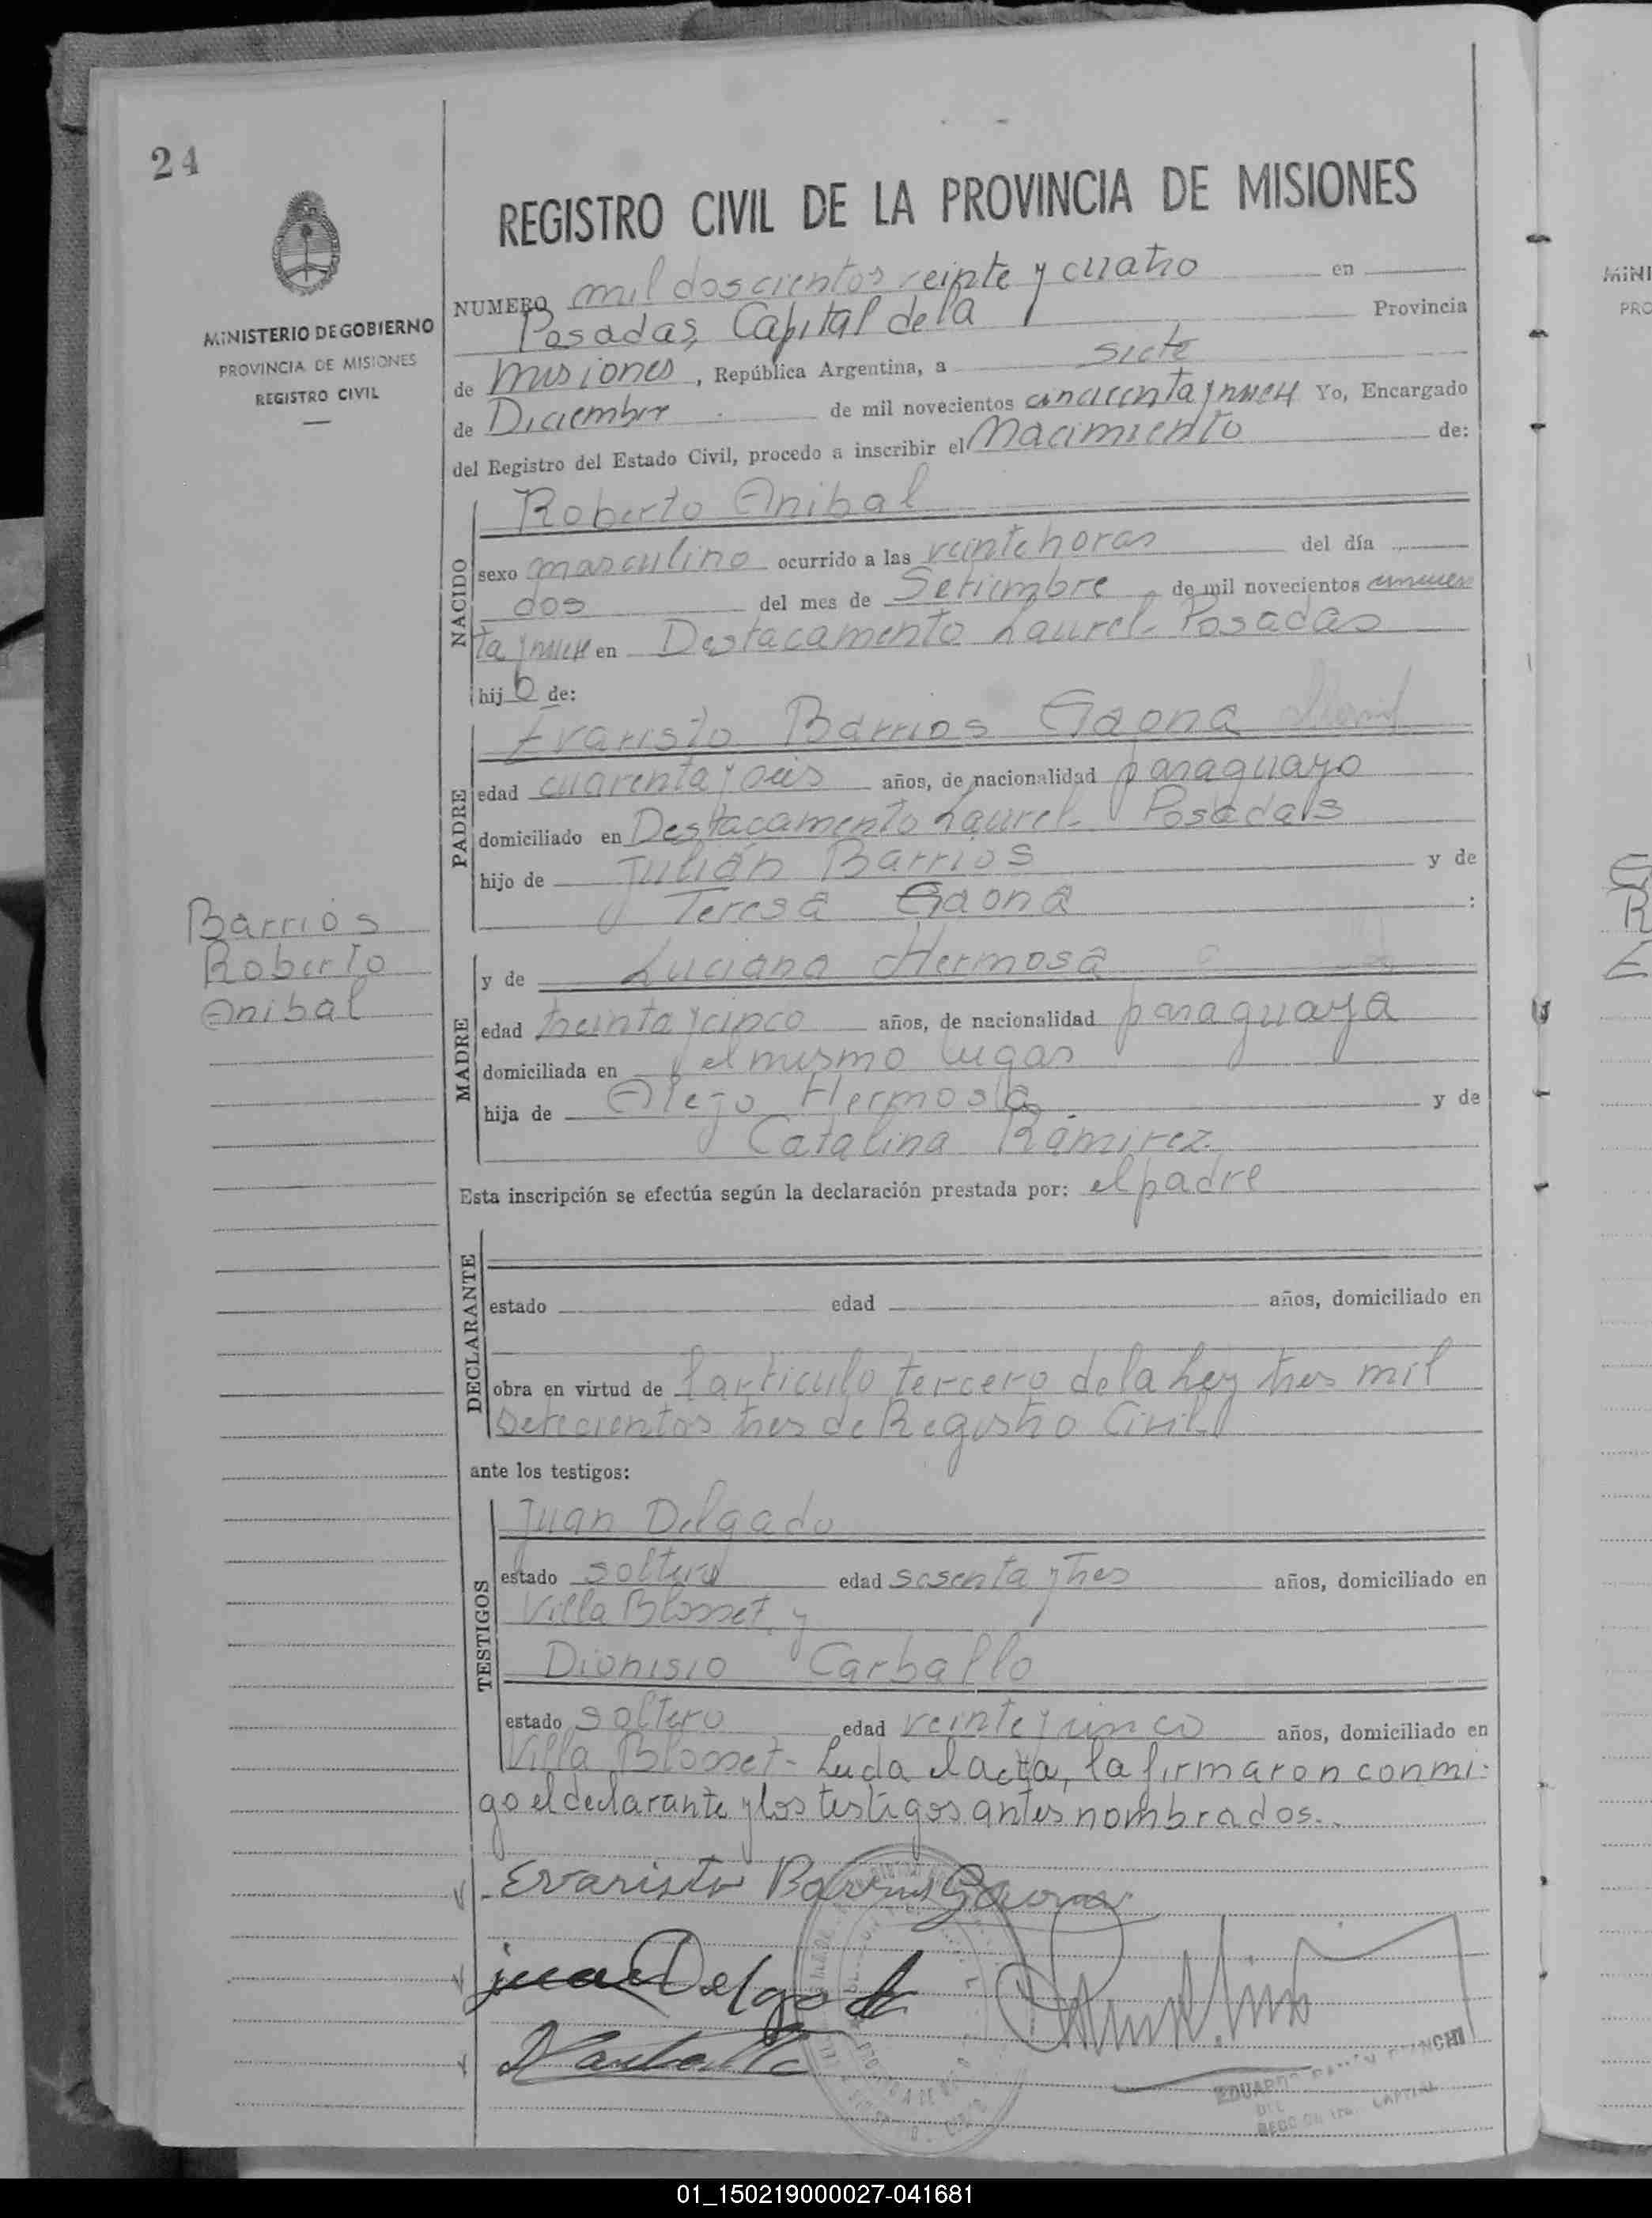 24
REGISTRO CIVIL DE LA PROVINCIA DE MISIONES
MINISTERIO DE GOBIERNO
PROVINCIA DE MISIONES
REGISTRO CIVIL
NUMERO mil doscientos veinte y cuatro en
Posadas, Capital de la Provincia
de Misiones, República Argentina, a siete
de Diciembre de mil novecientos cincuenta y nueve Yo, Encargado
del Registro del Estado Civil, procedo a inscribir el Nacimiento de:
NACIDO
Roberto Anibal
sexo masculino ocurrido a las veinte horas del día
dos del mes de Setiembre de mil novecientos cincuen
ta y nueve en Destacamento Laurel- Posadas
hijo de:
PADRE
Evaristo Barrios Gaona
edad cuarenta y seis años, de nacionalidad paraguayo
domiciliado en Destacamento Laurel- Posadas
hijo de Julián Barrios y de
Teresa Gaona :
Barrios
Roberto
Anibal
MADRE
y de Luciana Hermosa
edad treinta y cinco años, de nacionalidad paraguaya
domiciliada en el mismo lugar
hija de Alejo Hermosa y de
Catalina Ramirez
Esta inscripción se efectúa según la declaración prestada por: el padre
DECLARANTE
estado edad años, domiciliado en
obra en virtud de l articulo tercero de la Ley tres mil
setecientos tres de Registro Civil
ante los testigos:
TESTIGOS
Juan Delgado
estado soltero edad sesenta y tres años, domiciliado en
Villa Blosset y
Dionisio Carballo
estado soltero edad veinte y cinco años, domiciliado en
Villa Blosset- Leida el acta, la firmaron conmi-
go el declarante y los testigos antes nombrados.
Evaristo Barrios Gaona
juan Delgado
D Carballo
EDUARDO
CAPITAL
MINI
PRO
01_150219000027-041681